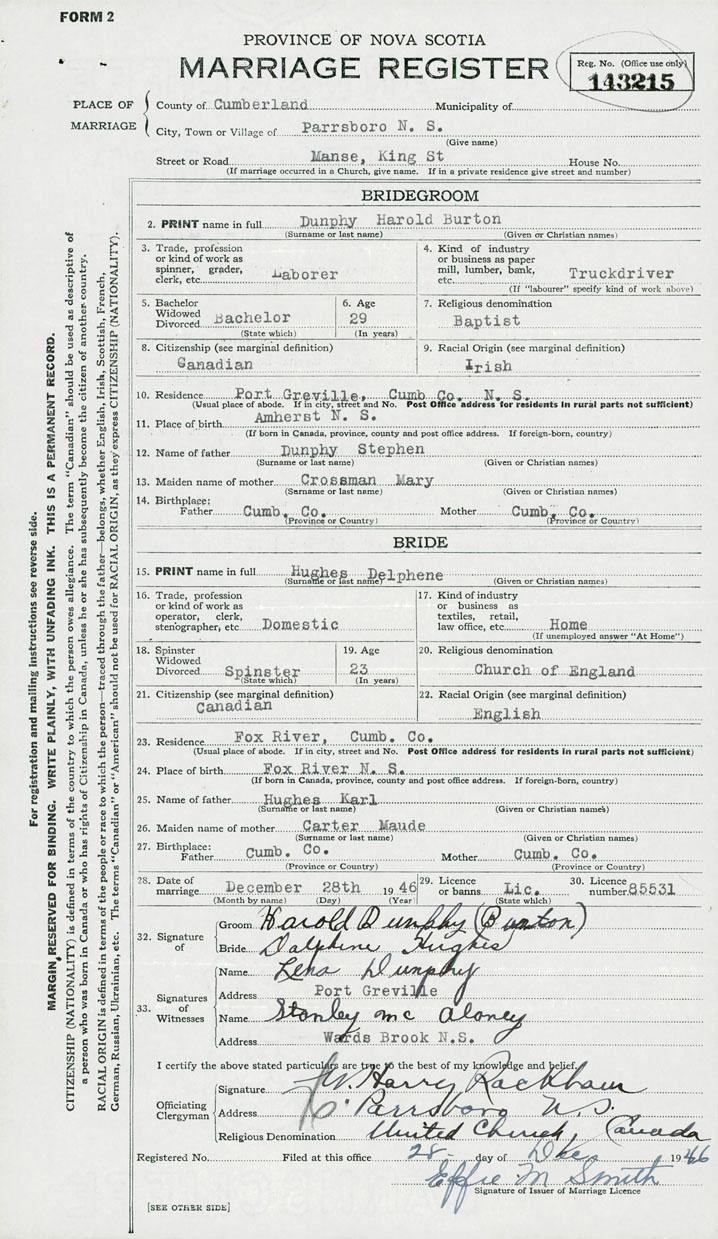 FORM 2
PROVINCE OF NOVA SCOTIA
MARRIAGE REGISTER
Reg. No. (Office use only)
143215
PLACE OF MARRIAGE
County of Cumberland Municipality of
City, Town or Village of Parrsboro N. S.
(Give name)
Street or Road Manse, King St House No.
(If marriage occurred in a Church, give name. If in a private residence give street and number)
BRIDEGROOM
2. PRINT name in full Dunphy Harold Burton
(Surname or last name) (Given or Christian names)
3. Trade, profession or kind of work as spinner, grader, clerk, etc. Laborer
4. Kind of industry or business as paper mill, lumber, bank, etc. Truckdriver
(If "labourer" specify kind of work above)
5. Bachelor Widowed Divorced Bachelor
(State which)
6. Age 29
(In years)
7. Religious denomination
Baptist
8. Citizenship (see marginal definition)
Canadian
9. Racial Origin (see marginal definition)
Irish
10. Residence Port Greville, Cumb Co. N. S.
(Usual place of abode. If in city, street and No. Post Office address for residents in rural parts not sufficient)
11. Place of birth Amherst N. S.
(If born in Canada, province, county and post office address. If foreign-born, country)
12. Name of father Dunphy Stephen
(Surname or last name) (Given or Christian names)
13. Maiden name of mother Crossman Mary
(Surname or last name) (Given or Christian names)
14. Birthplace:
Father Cumb. Co. Mother Cumb. Co.
(Province or Country) (Province or Country)
BRIDE
15. PRINT name in full Hughes Delphene
(Surname or last name) (Given or Christian names)
16. Trade, profession or kind of work as operator, clerk, stenographer, etc. Domestic
17. Kind of industry or business as textiles, retail, law office, etc. Home
(If unemployed answer "At Home")
18. Spinster Widowed Divorced Spinster
(State which)
19. Age 23
(In years)
20. Religious denomination
Church of England
21. Citizenship (see marginal definition)
Canadian
22. Racial Origin (see marginal definition)
English
23. Residence Fox River, Cumb. Co.
(Usual place of abode. If in city, street and No. Post Office address for residents in rural parts not sufficient)
24. Place of birth Fox River N. S.
(If born in Canada, province, county and post office address. If foreign-born, country)
25. Name of father Hughes Karl
(Surname or last name) (Given or Christian names)
26. Maiden name of mother Carter Maude
(Surname or last name) (Given or Christian names)
27. Birthplace:
Father Cumb. Co. Mother Cumb. Co.
(Province or Country) (Province or Country)
28. Date of marriage December 28th 1946
(Month by name) (Day) (Year)
29. Licence or banns Lic.
(State which)
30. Licence number 85531
32. Signature of
Groom Harold Dunphy (Burton)
Bride Dalphine Hughes
33. Signatures of Witnesses
Name Lena Dunphy
Address Port Greville
Name Stanley mc Aloney
Address Wards Brook N.S.
I certify the above stated particulars are true to the best of my knowledge and belief.
Officiating Clergyman
Signature W. Harry Rackham
Address Parrsboro N.S.
Religious Denomination United Church, Canada
Registered No. Filed at this office 28 day of Dec 1946
Effie M Smith
Signature of Issuer of Marriage Licence
[SEE OTHER SIDE]
For registration and mailing instructions see reverse side.
MARGIN RESERVED FOR BINDING. WRITE PLAINLY, WITH UNFADING INK. THIS IS A PERMANENT RECORD.
CITIZENSHIP (NATIONALITY) is defined in terms of the country to which the person owes allegiance. The term "Canadian" should be used as descriptive of
a person who was born in Canada or who has rights of Citizenship in Canada, unless he or she has subsequently become the citizen of another country.
RACIAL ORIGIN is defined in terms of the people or race to which the person—traced through the father—belongs, whether English, Irish, Scottish, French,
German, Russian, Ukrainian, etc. The terms "Canadian" or "American" should not be used for RACIAL ORIGIN, as they express CITIZENSHIP (NATIONALITY).